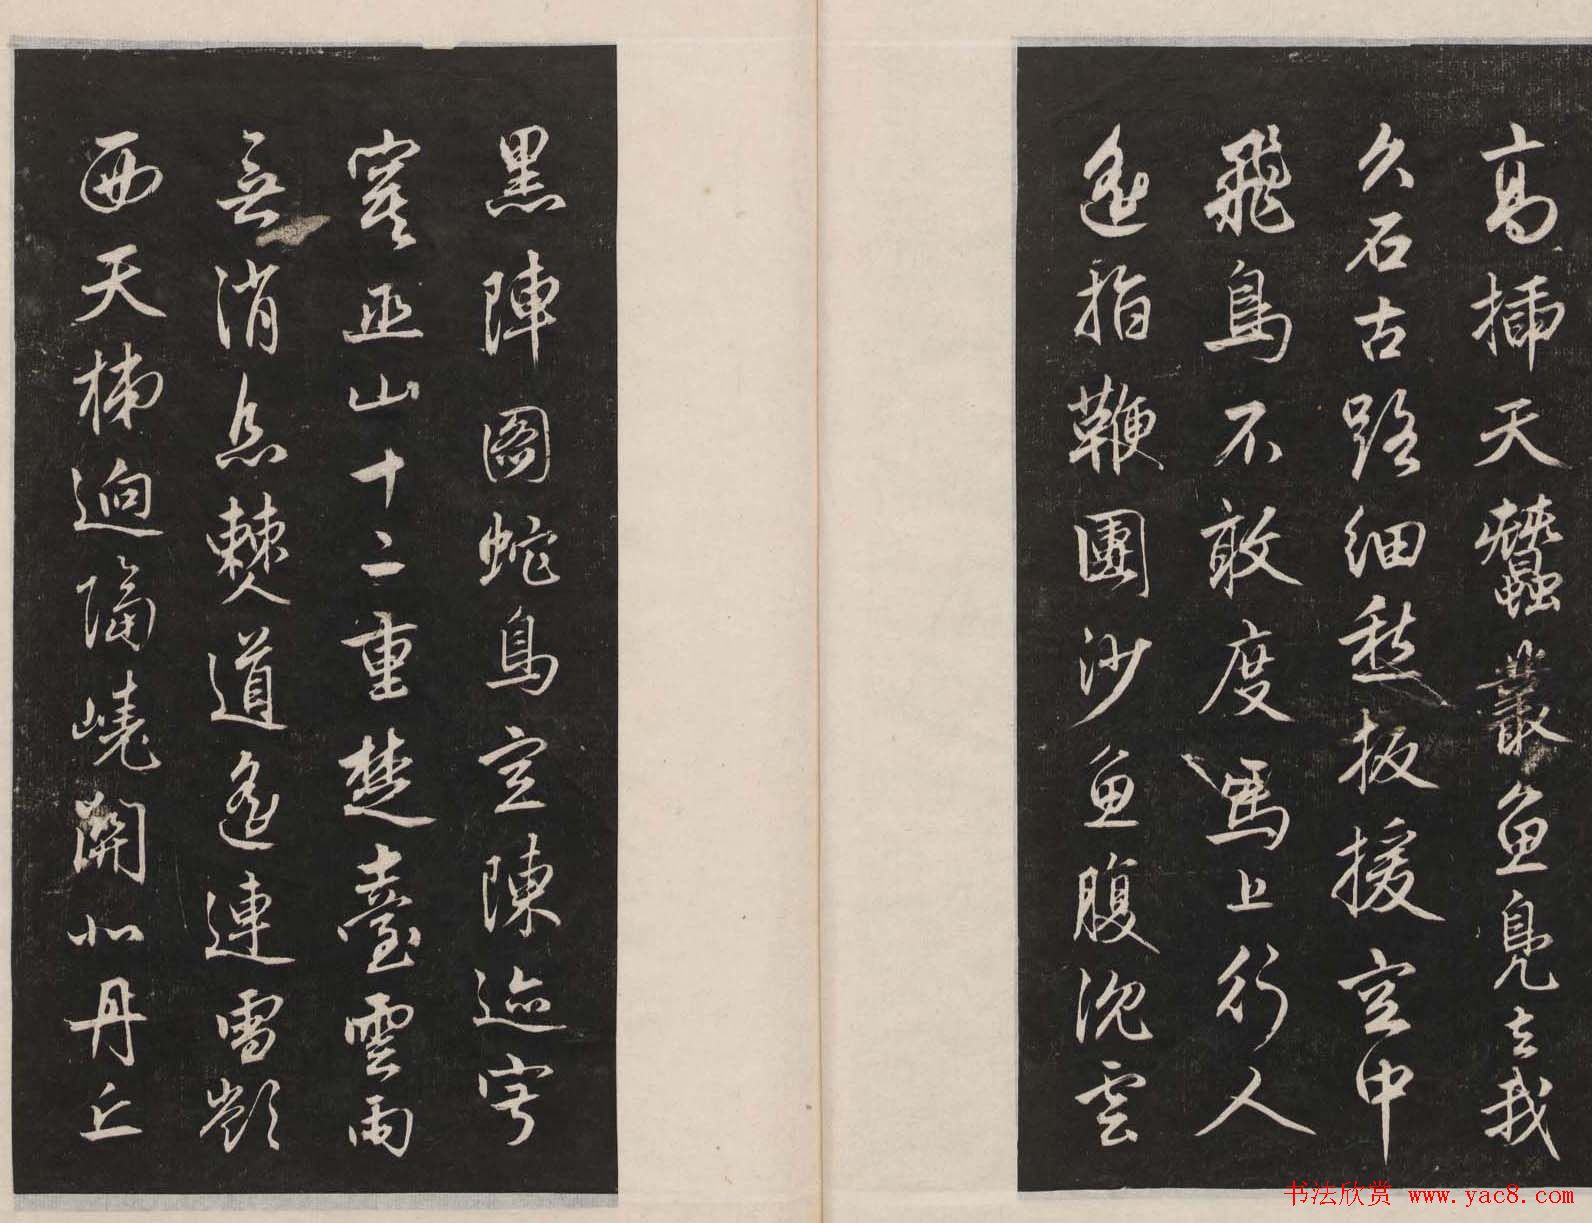 高插天蠶叢魚鳧去我
久石古路細愁扳援空中
飛鳥不敢度馬上行人
遙指鞭團沙魚腹沈雲
黑陣圖蛇鳥空陳迹
巫山十二重楚臺雲雨
無消息僰道遙連雪嶺
西天梯迥隔嶢關北丹丘
书法欣赏 www.yac8.com